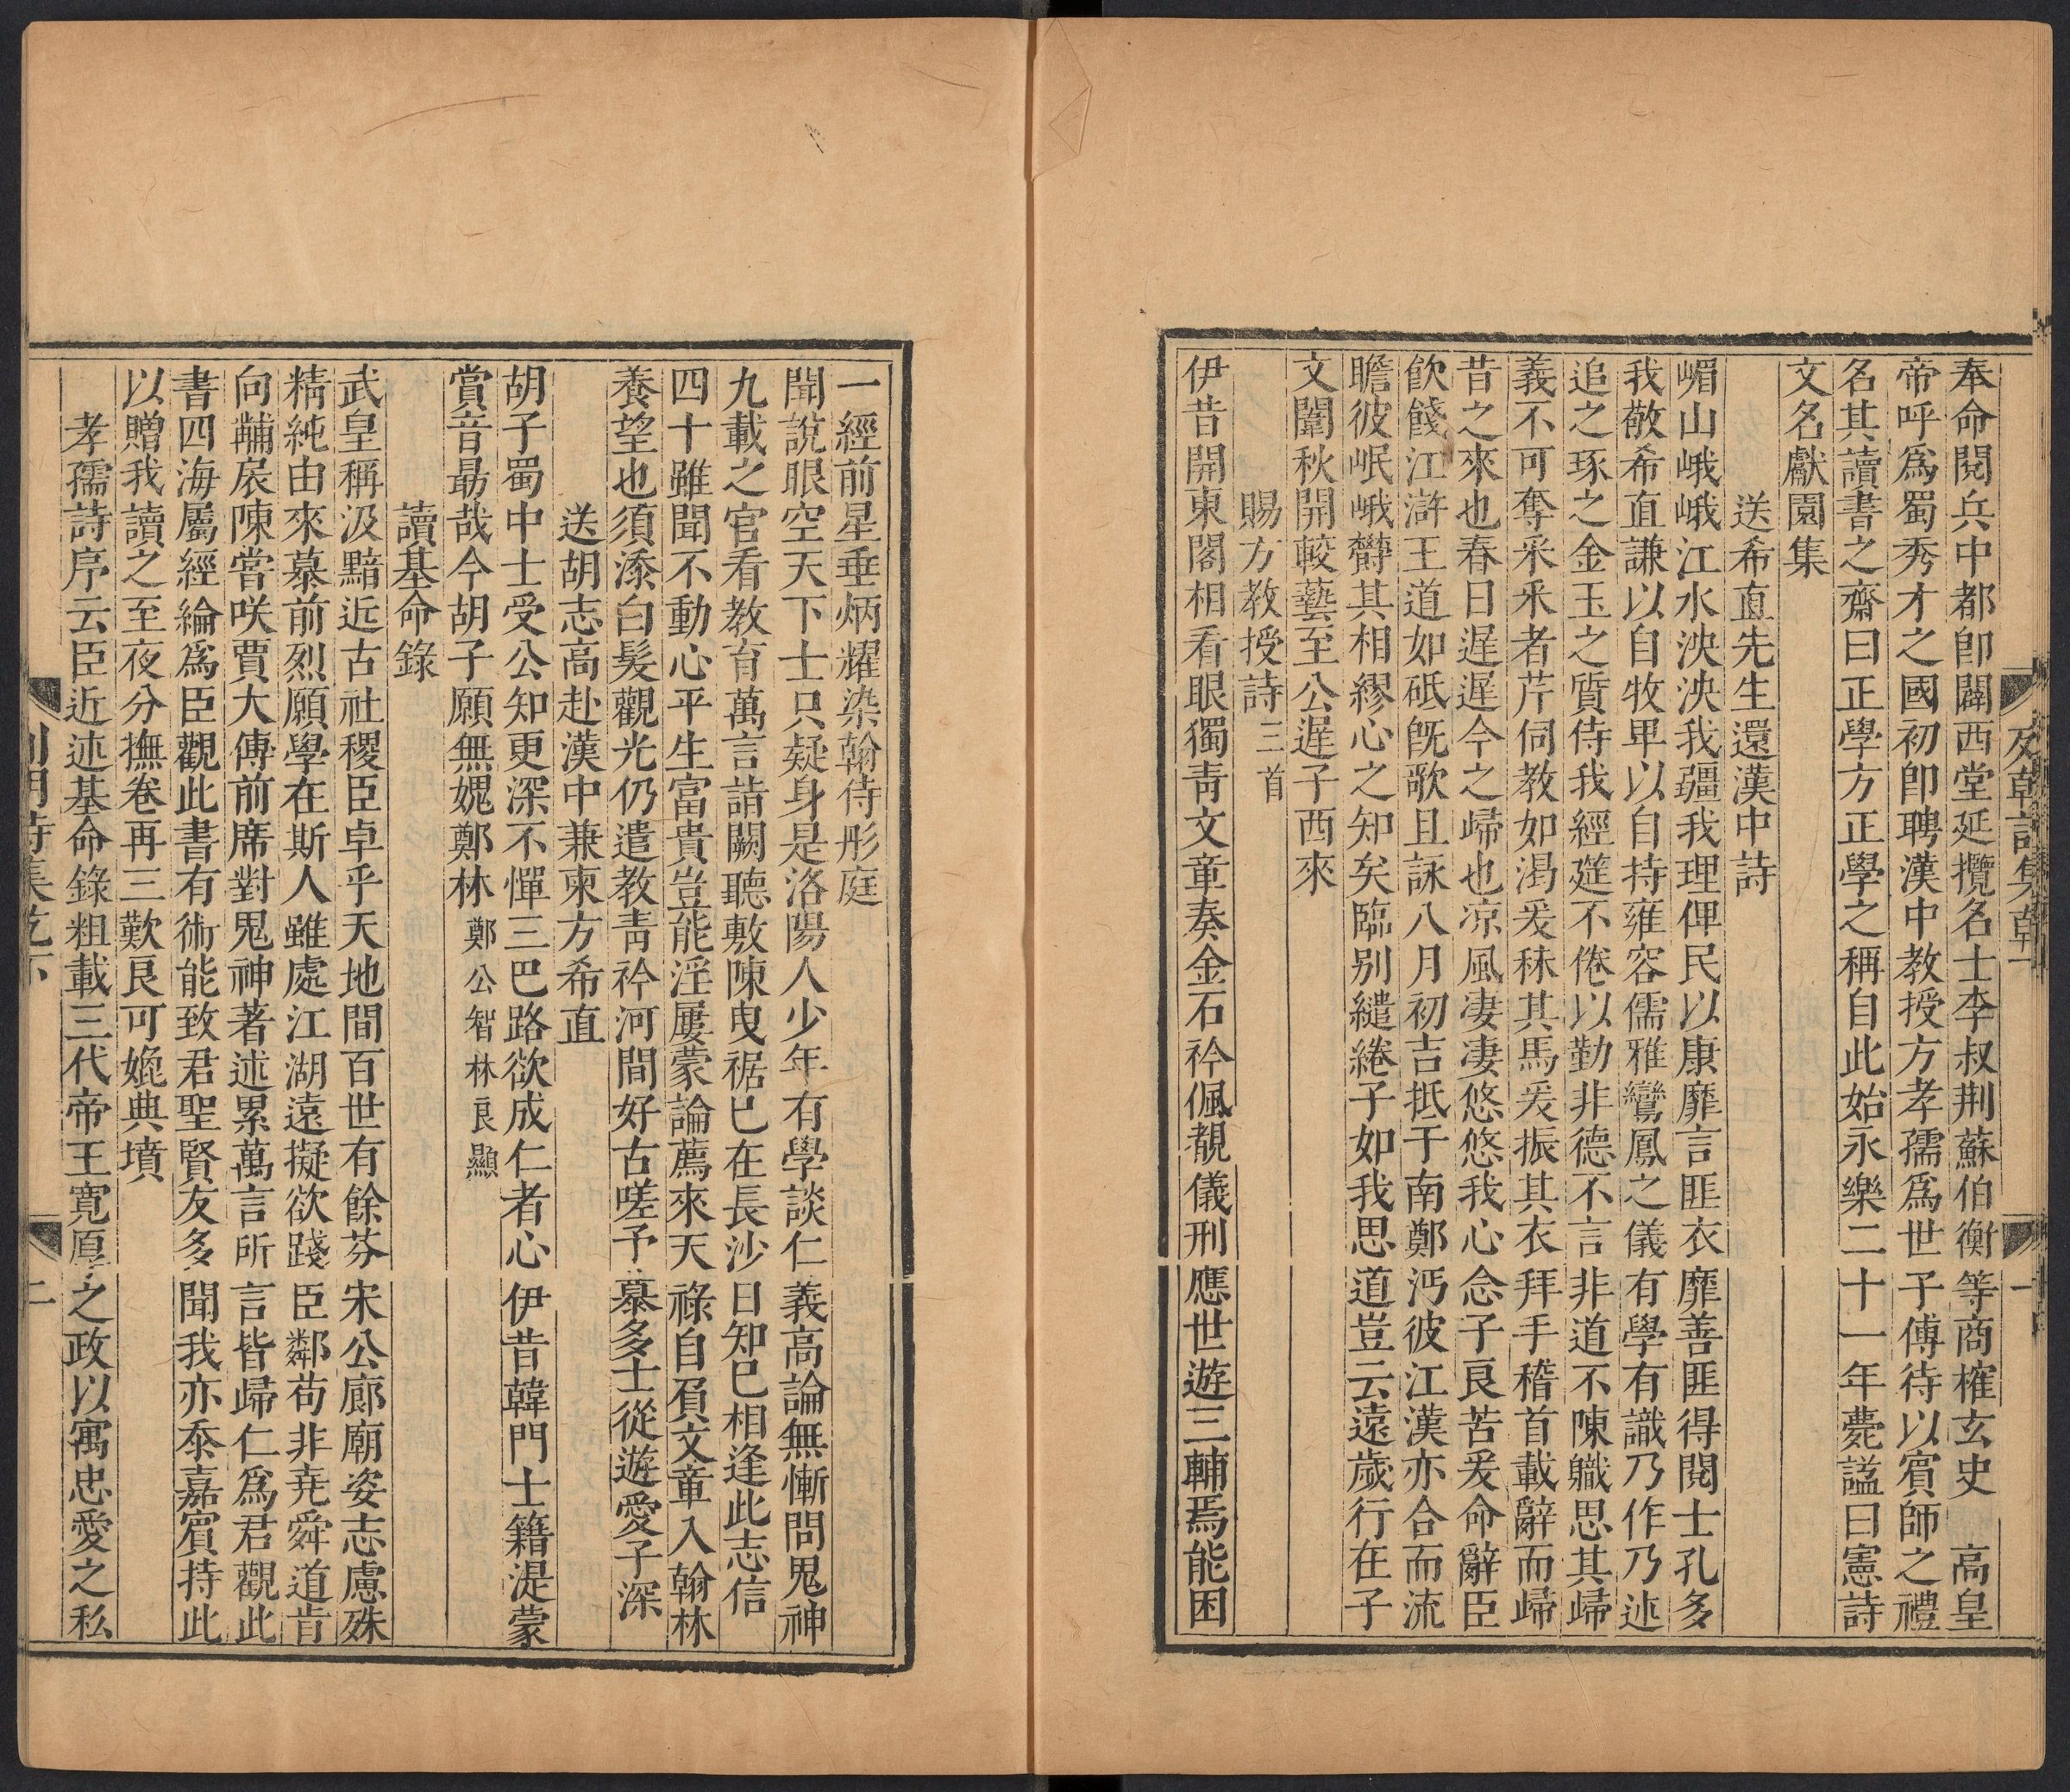 奉命閱兵中都卽闢西堂延攬名士李叔荆蘇伯衡等商榷玄史　高皇
帝呼爲蜀秀才之國初卽聘漢中教授方孝孺爲世子傅待以賓師之禮
名其讀書之齋曰正學方正學之稱自此始永樂二十一年薨諡曰憲詩
文名獻園集
送希直先生還漢中詩
嵋山峨峨江水泱泱我疆我理俾民以康靡言匪衣靡善匪得閱士孔多
我敬希直謙以自牧卑以自持雍容儒雅鸞鳳之儀有學有識乃作乃述
追之琢之金玉之質侍我經筵不倦以勤非德不言非道不陳職思其歸
義不可奪采采者芹伺教如渴爰秣其馬爰振其衣拜手稽首載辭而歸
昔之來也春日遲遲今之歸也凉風凄凄悠悠我心念子良苦爰命辭臣
飮餞江滸王道如砥旣歌且詠八月初吉抵于南鄭沔彼江漢亦合而流
瞻彼岷峨欝其相繆心之知矣臨別繾綣子如我思道豈云遠歲行在子
文闈秋開較藝至公遲子西來
賜方教授詩三首
伊昔開東閣相看眼獨靑文章奏金石衿佩覩儀刑應世遊三輔焉能困
一經前星垂炳耀染翰侍彤庭
聞說眼空天下士只疑身是洛陽人少年有學談仁義高論無慚問鬼神
九載之官看教育萬言詣闕聽敷陳曳裾已在長沙日知己相逢此志信
四十雖聞不動心平生富貴豈能淫屢蒙論薦來天祿自負文章入翰林
養望也須添白髮觀光仍遣教靑衿河間好古嗟予慕多士從遊愛子深
送胡志高赴漢中兼柬方希直
胡子蜀中士受公知更深不憚三巴路欲成仁者心伊昔韓門士籍湜蒙
賞音最哉今胡子願無媿鄭林鄭公智林良顯
讀基命錄
武皇稱汲黯近古社稷臣卓乎天地間百世有餘芬宋公廊廟姿志慮殊
精純由來慕前烈願學在斯人雖處江湖遠擬欲踐臣鄰苟非堯舜道肯
向黼扆陳嘗咲賈大傅前席對鬼神著述累萬言所言皆歸仁爲君觀此
書四海屬經綸爲臣觀此書有術能致君聖賢友多聞我亦忝嘉賓持此
以贈我讀之至夜分撫卷再三歎艮可媲典墳
孝孺詩序云臣近述基命錄粗載三代帝王寬厚之政以寓忠愛之私